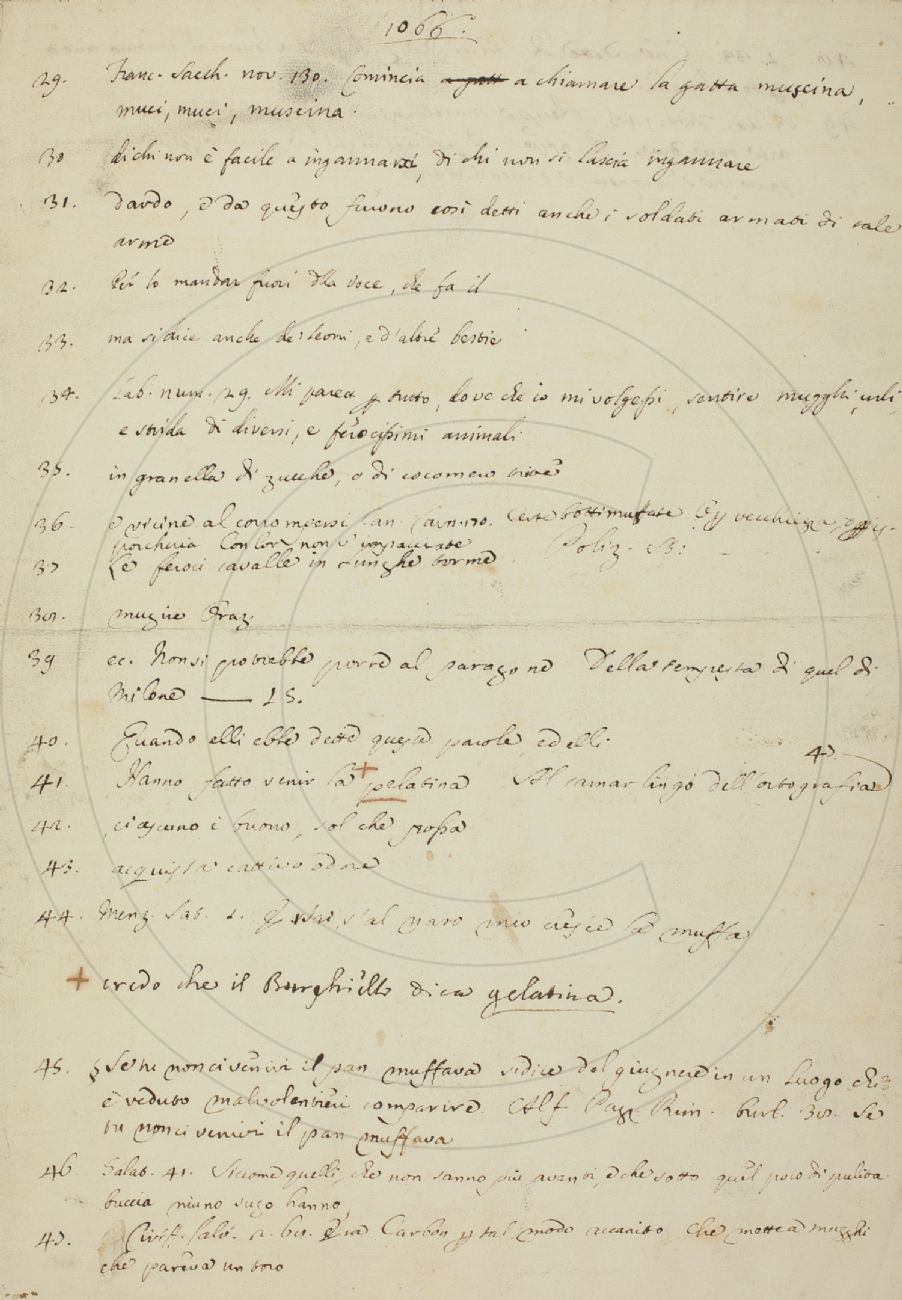 1066.
29. Franc. Sacch. nov. 130. Comincia a gatt a chiamare la gatta muscina,
muci, muci, muscina.
30 di chi non è facile a ingannarsi, di chi non si lascia ingannare
31. dardo, e da questo furono così detti anche i soldati armati di tale
arme
32. Per lo mandar fuori della voce, che fa il
33. ma si dice anche de' leoni, e d'altre bestie
34. Lab. num. 29. Mi parea p tutto, dove che io mi volgessi, sentire mugghi, urli,
e strida di diversi, e ferocissimi animali
35. in granella di zucche, o di cocomero
36. e vicine al corrompersi Can. Carn. 170. Certe botti muffate p vecchiezza
porcheria Con loro non
37 Le feroci cavalle in lunghe torme Poliz. St:
38. mugire Graz.
39 ec. Non si potrebbe porre al paragone Della tempesta di quel di
Milone —— LS.
40. Quando elli ebbe dette queste parole, ed elli
41. Hanno fatto venir la + pelatina Al camarlingo dell'ortografia
42. ciascuno è buono, sol che possa
43. acquista cattivo odore
44. Menz. Sat. 1. s'al naso mio cresce la muffa
+ credo che il Burchiello dica gelatina.
45. Se tu non ci venivi il pan muffava si dice del giugnere in un luogo chi
è veduto malvolentieri comparire. Alf. Pazz. Rim. burl. Se
tu non ci venivi il pan muffava
46 Galat. 41. Siccome quelli, che non sanno più avanti, e che sotto quel poco di pulita
buccia niuno sugo hanno,
47. Ciriff. Calv. Era Carbon p tal modo accanito, Che mettea mugghi
che pareva un toro